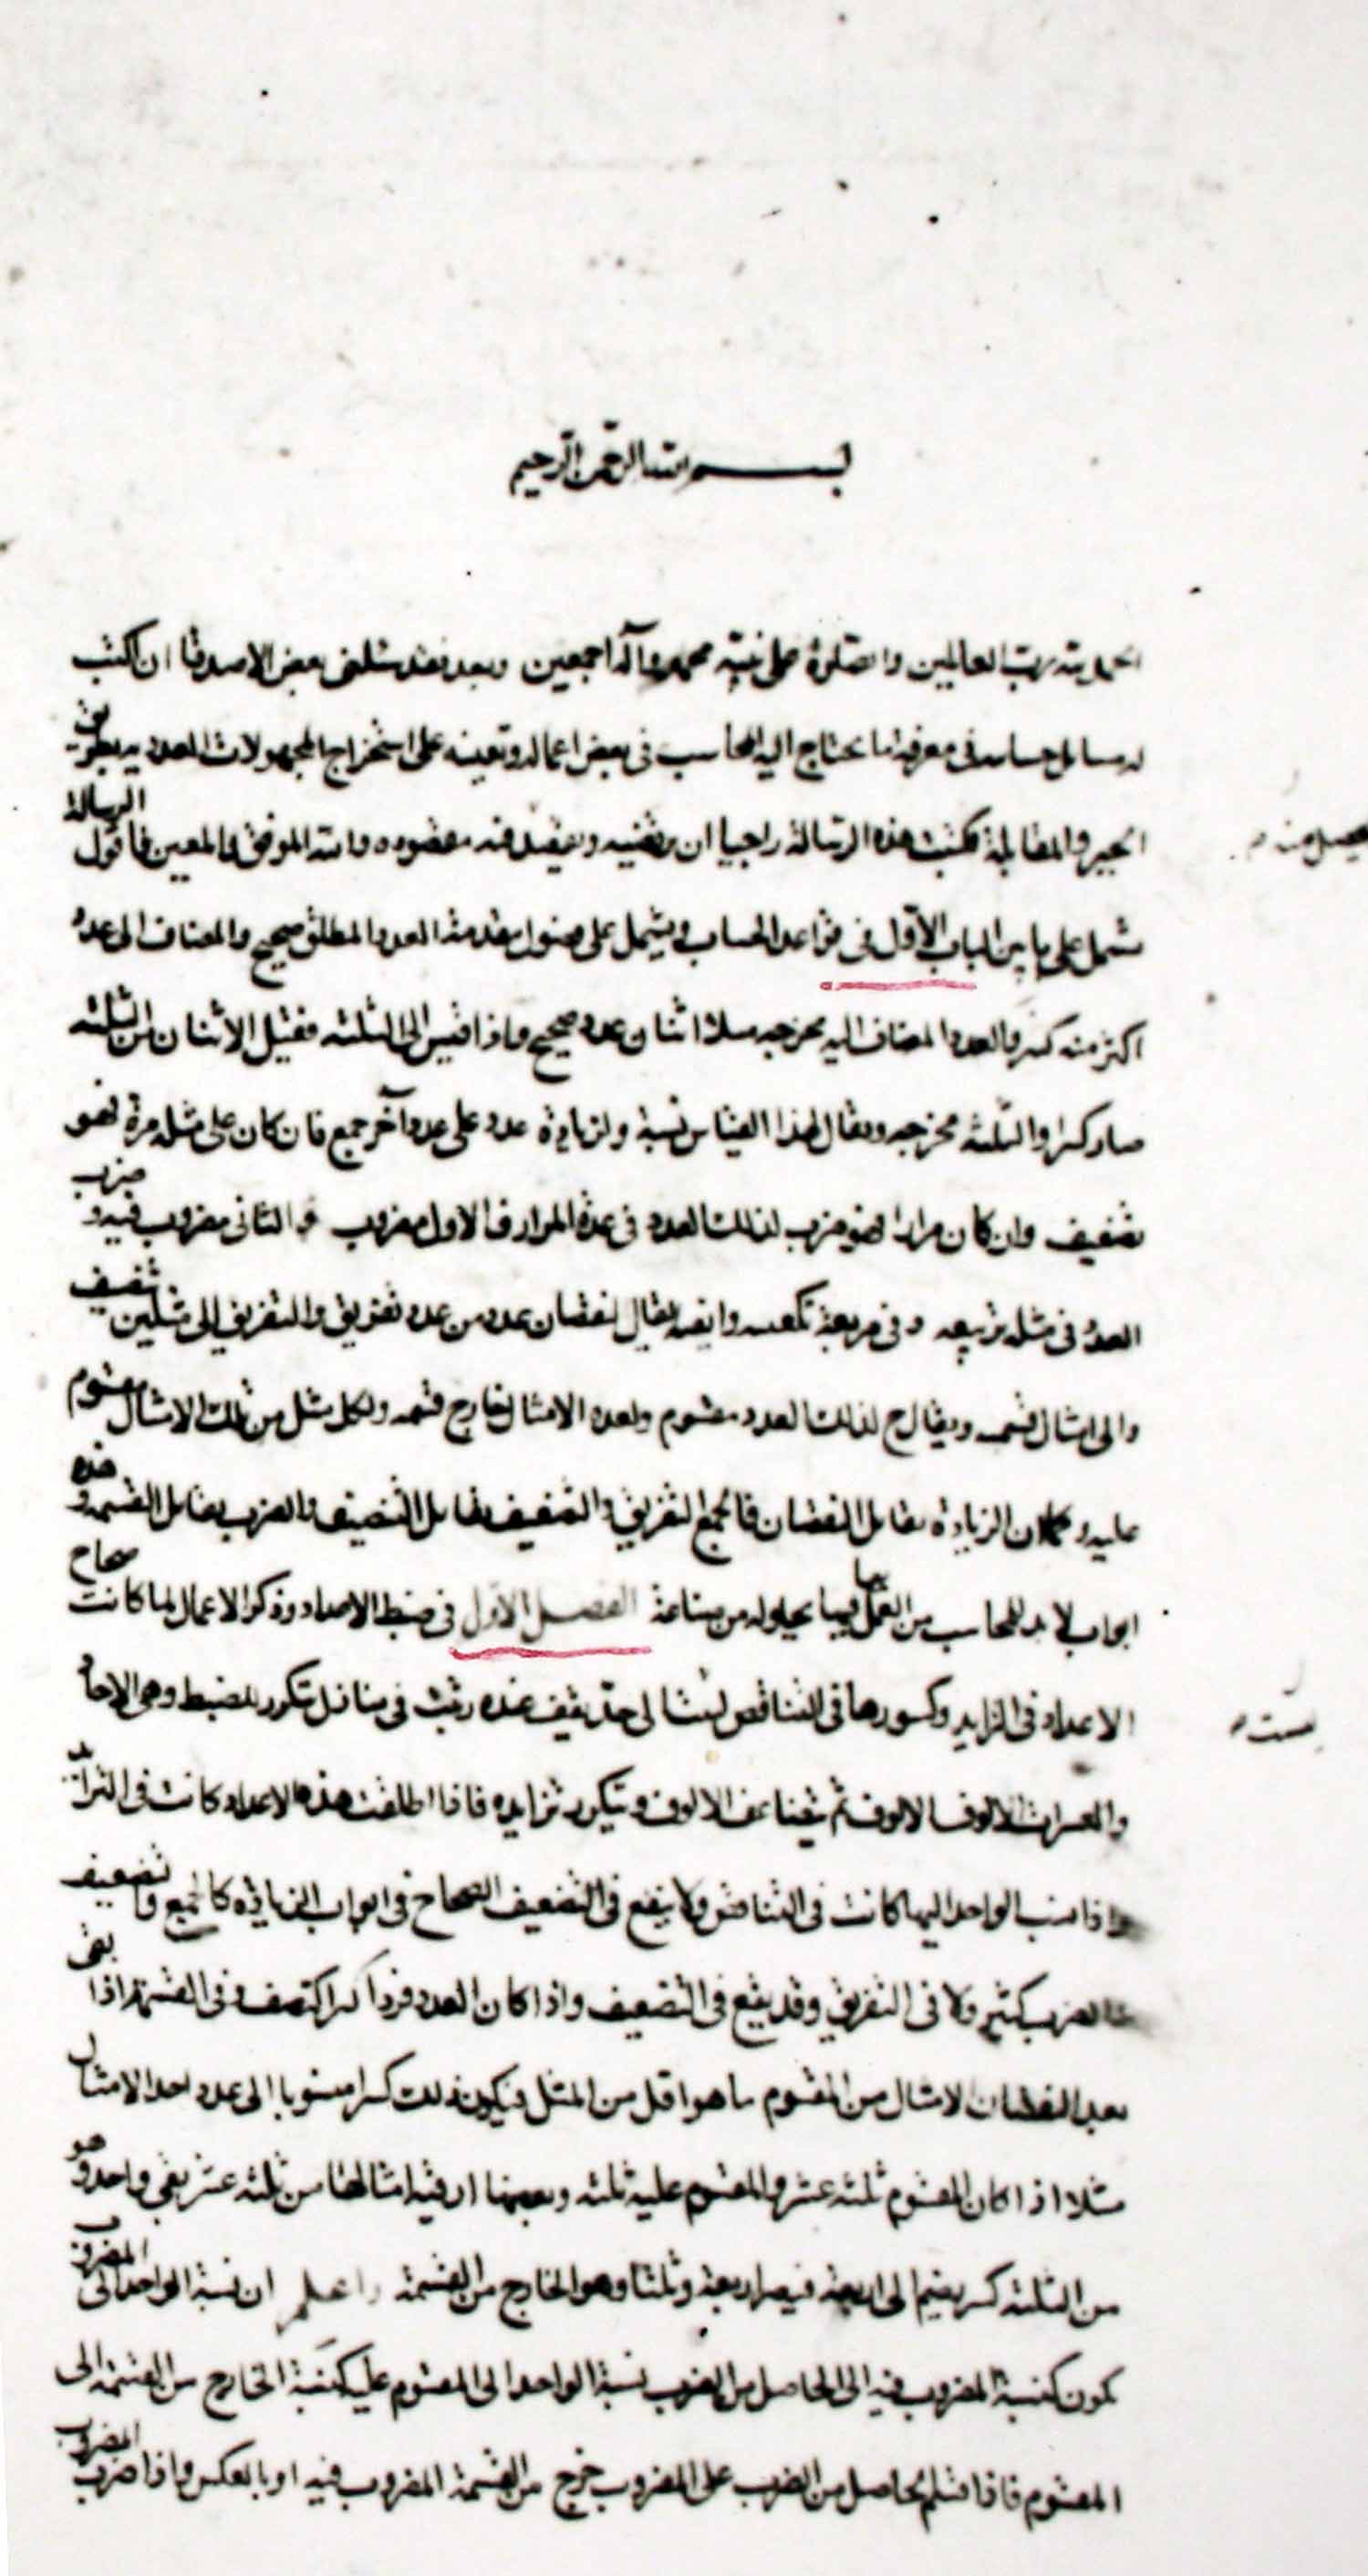 بسم الله الرحمن الرحيم
الحمد لله رب العالمين والصلوة على نبيه محمد وآله اجمعين وبعد فقد سئلنى بعض الاصدقا ان اكتب
له مسايل حسابية فى معرفة ما يحتاج اليه المحاسب فى بعض اعماله وتعينه على استخراج المجهولات العددية بطريق
الجبر والمقابلة فكتبت هذه الرسالة راجيا ان ترضيه ويفيد فيه مقصوده والله الموفق والمعين فاقول الرسالة
تشمل على بابين الباب الاول فى قواعد الحساب ويشمل على فصول مقدمة العدد المطلق صحيح والمضاف الى عدد
اكثر منه كسر والعدد المضاف اليه مخرجه مثلا اثنان عدد صحيح فاذا قيس الى الثلثة فقيل الاثنان من الثلثة
صار كسرا والثلثة مخرجه ويقال لهذا القياس نسبة ولزيادة عدد على عدد آخر جمع فان كان على مثله مرة فهو
تضعيف وان كان مرارا فهو ضرب لذلك العدد فى عدة المرار فالاول مضروب والثانى مضروب فيه وضرب
العدد فى مثله تربيعه وفى مربعه تكعيبه وايضا يقال لنقصان عدد من عدد تفريق والتفريق الى مثلين تنصيف
والى امثال قسمة ويقال ح لذلك العدد مقسوم ولعدة الامثال خارج قسمة ولكل مثل من تلك الامثال مقسوم
عليه وكما ان الزيادة تقابل النقصان فالجمع التفريق والتضعيف يقابل التنصيف والضرب يقابل القسمة وهذه
ابواب لا بد للمحاسب من العمل بها فيما يحاوله من صناعة الفصل الاول فى ضبط الاعداد وذكر الاعمال لما كانت صحاح
الاعداد فى التزايد وكسورها فى التناقص لم يتناها الى حد يقف عنده رتبت فى منازل تتكرر للضبط وهى الاحاد
والعشرات الالوف الالوف ثم يتضاعف الالوف ويتكرر تزايده فاذا اطلقت هذه الاعداد كانت فى التزايد
واذا نسب الواحد اليها كانت فى التناقص ولا يقع فى التضعيف الصحاح فى ابواب الزيادة كالجمع والتضعيف
والضرب كسر ولا فى التفريق وقد يقع فى التنصيف واذا كان العدد فردا كسر النصف وفى القسمة اذا بقى
بعد النقصان الامثال من المقسوم ما هو اقل من المثل فيكون ذلك كسرا منسوبا الى عدد احد الامثال
مثلا اذا كان المقسوم ثلثة عشر والمقسوم عليه ثلثة وبعضها اربعة امثالها من ثلثة عشر بقى واحد وهو
من الثلثة كسر يضم الى اربعة فيصير اربعة وثلثا وهو الخارج من القسمة واعلم ان نسبة الواحد الى المضروب
تكون كنسبة المضروب فيه الى الحاصل من الضرب نسبة الواحد الى المقسوم عليه كنسبة الخارج من القسمة الى
المقسوم فاذا قسم الحاصل من الضرب على المضروب خرج من القسمة المضروب فيه او بالعكس واذا ضرب المضروب